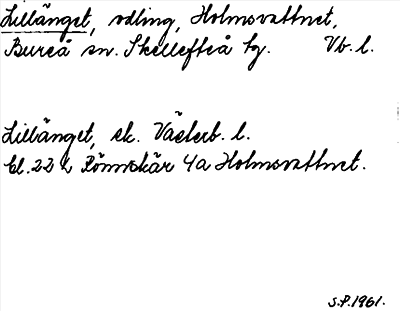 Lillänget, odling, Holmsvattnet,
Bureå sn. Skellefteå tg. Vb. l.
Lillänget, ek. Västerb. l.
Bl. 22 L Rönnskär 4a Holmsvattnet.
S.P. 1961.